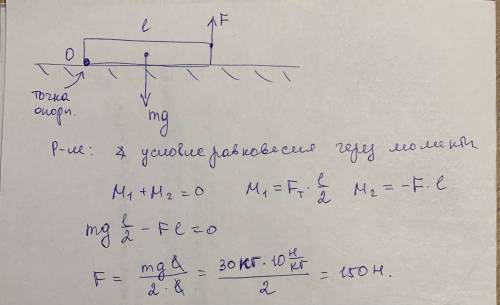 l
F
O
точка
опоры.
mg
Р-м: условие равновесия через моменты
M₁ + M₂ = 0   M₁ = Fт · l/2   M₂ = -F · l
mg l/2 - Fl = 0
F = mg l / 2 · l = 30 кг · 10 Н/кг / 2 = 150 Н.